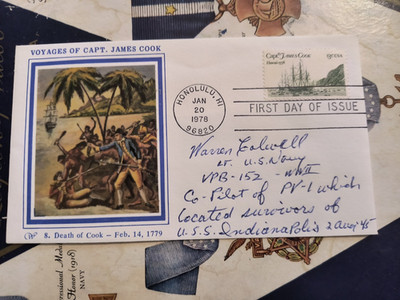 VOYAGES OF CAPT. JAMES COOK
Capt. James Cook
Hawaii 1778
13c USA
HONOLULU, HI
JAN
20
1978
96820
FIRST DAY OF ISSUE
Warren Colwell
LT. U.S. Navy
VPB-152 - WWII
Co-Pilot of PV-1 which
located survivors of
U.S.S. Indianapolis 2 Aug 45
8. Death of Cook – Feb. 14, 1779
Medal
Honor (1918)
NAVY